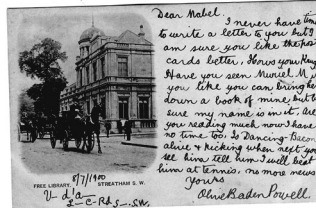 Dear Mabel.
I never have time
to write a letter to you but I
am sure you like the post
cards better, Hows your King
Have you seen Muriel M
you like you can bring he
down a book of mine but b
sure my name is in it, Are
you reading much now I have
no time too Is Dancing Bacon
alive & kicking when next you
see him tell him I will beat
him at tennis, no more news
Yours
Olive Baden Powell.
FREE LIBRARY, STREATHAM S. W.
8/7/1900